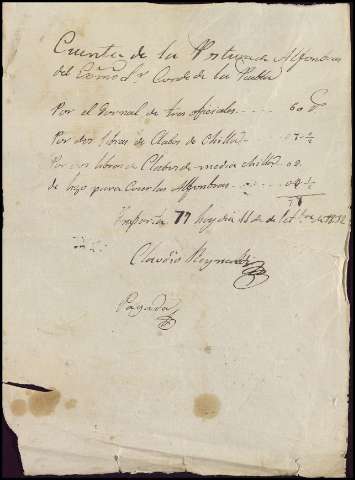 Cuenta de la Postura de Alfombras
del Exmo Sr Conde de la Puebla
Por el Jornal de tres ofiziales 60
Por dos libras de Clabos de Chilla 07 ½
Por dos libras de Clabos de media chilla 0
de hijo para Coser las Alfombras 0 ½
77
Importa 77 hoy dia 11 de
Claudio
Pagada